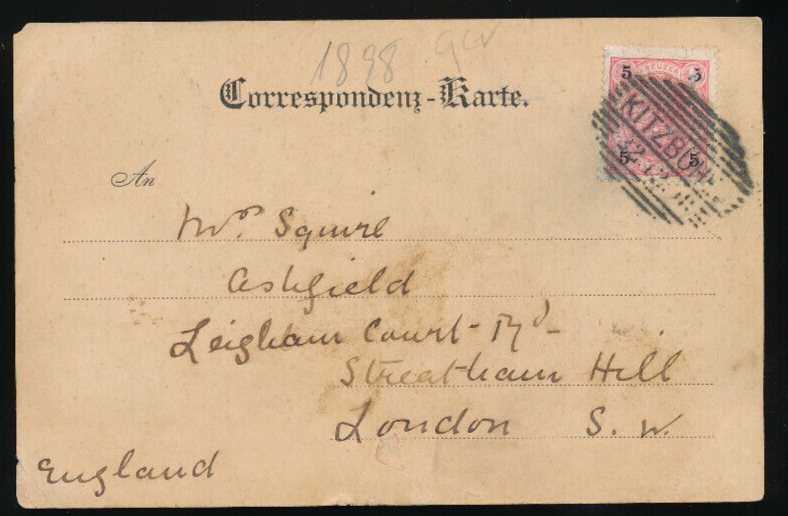 1898
Correspondenz-Karte.
5 KREUZER 5
KITZBÜH
5 5
An
Mrs. Squire
Ashfield
Leigham Court Rd
Streatham Hill
London S. W.
England